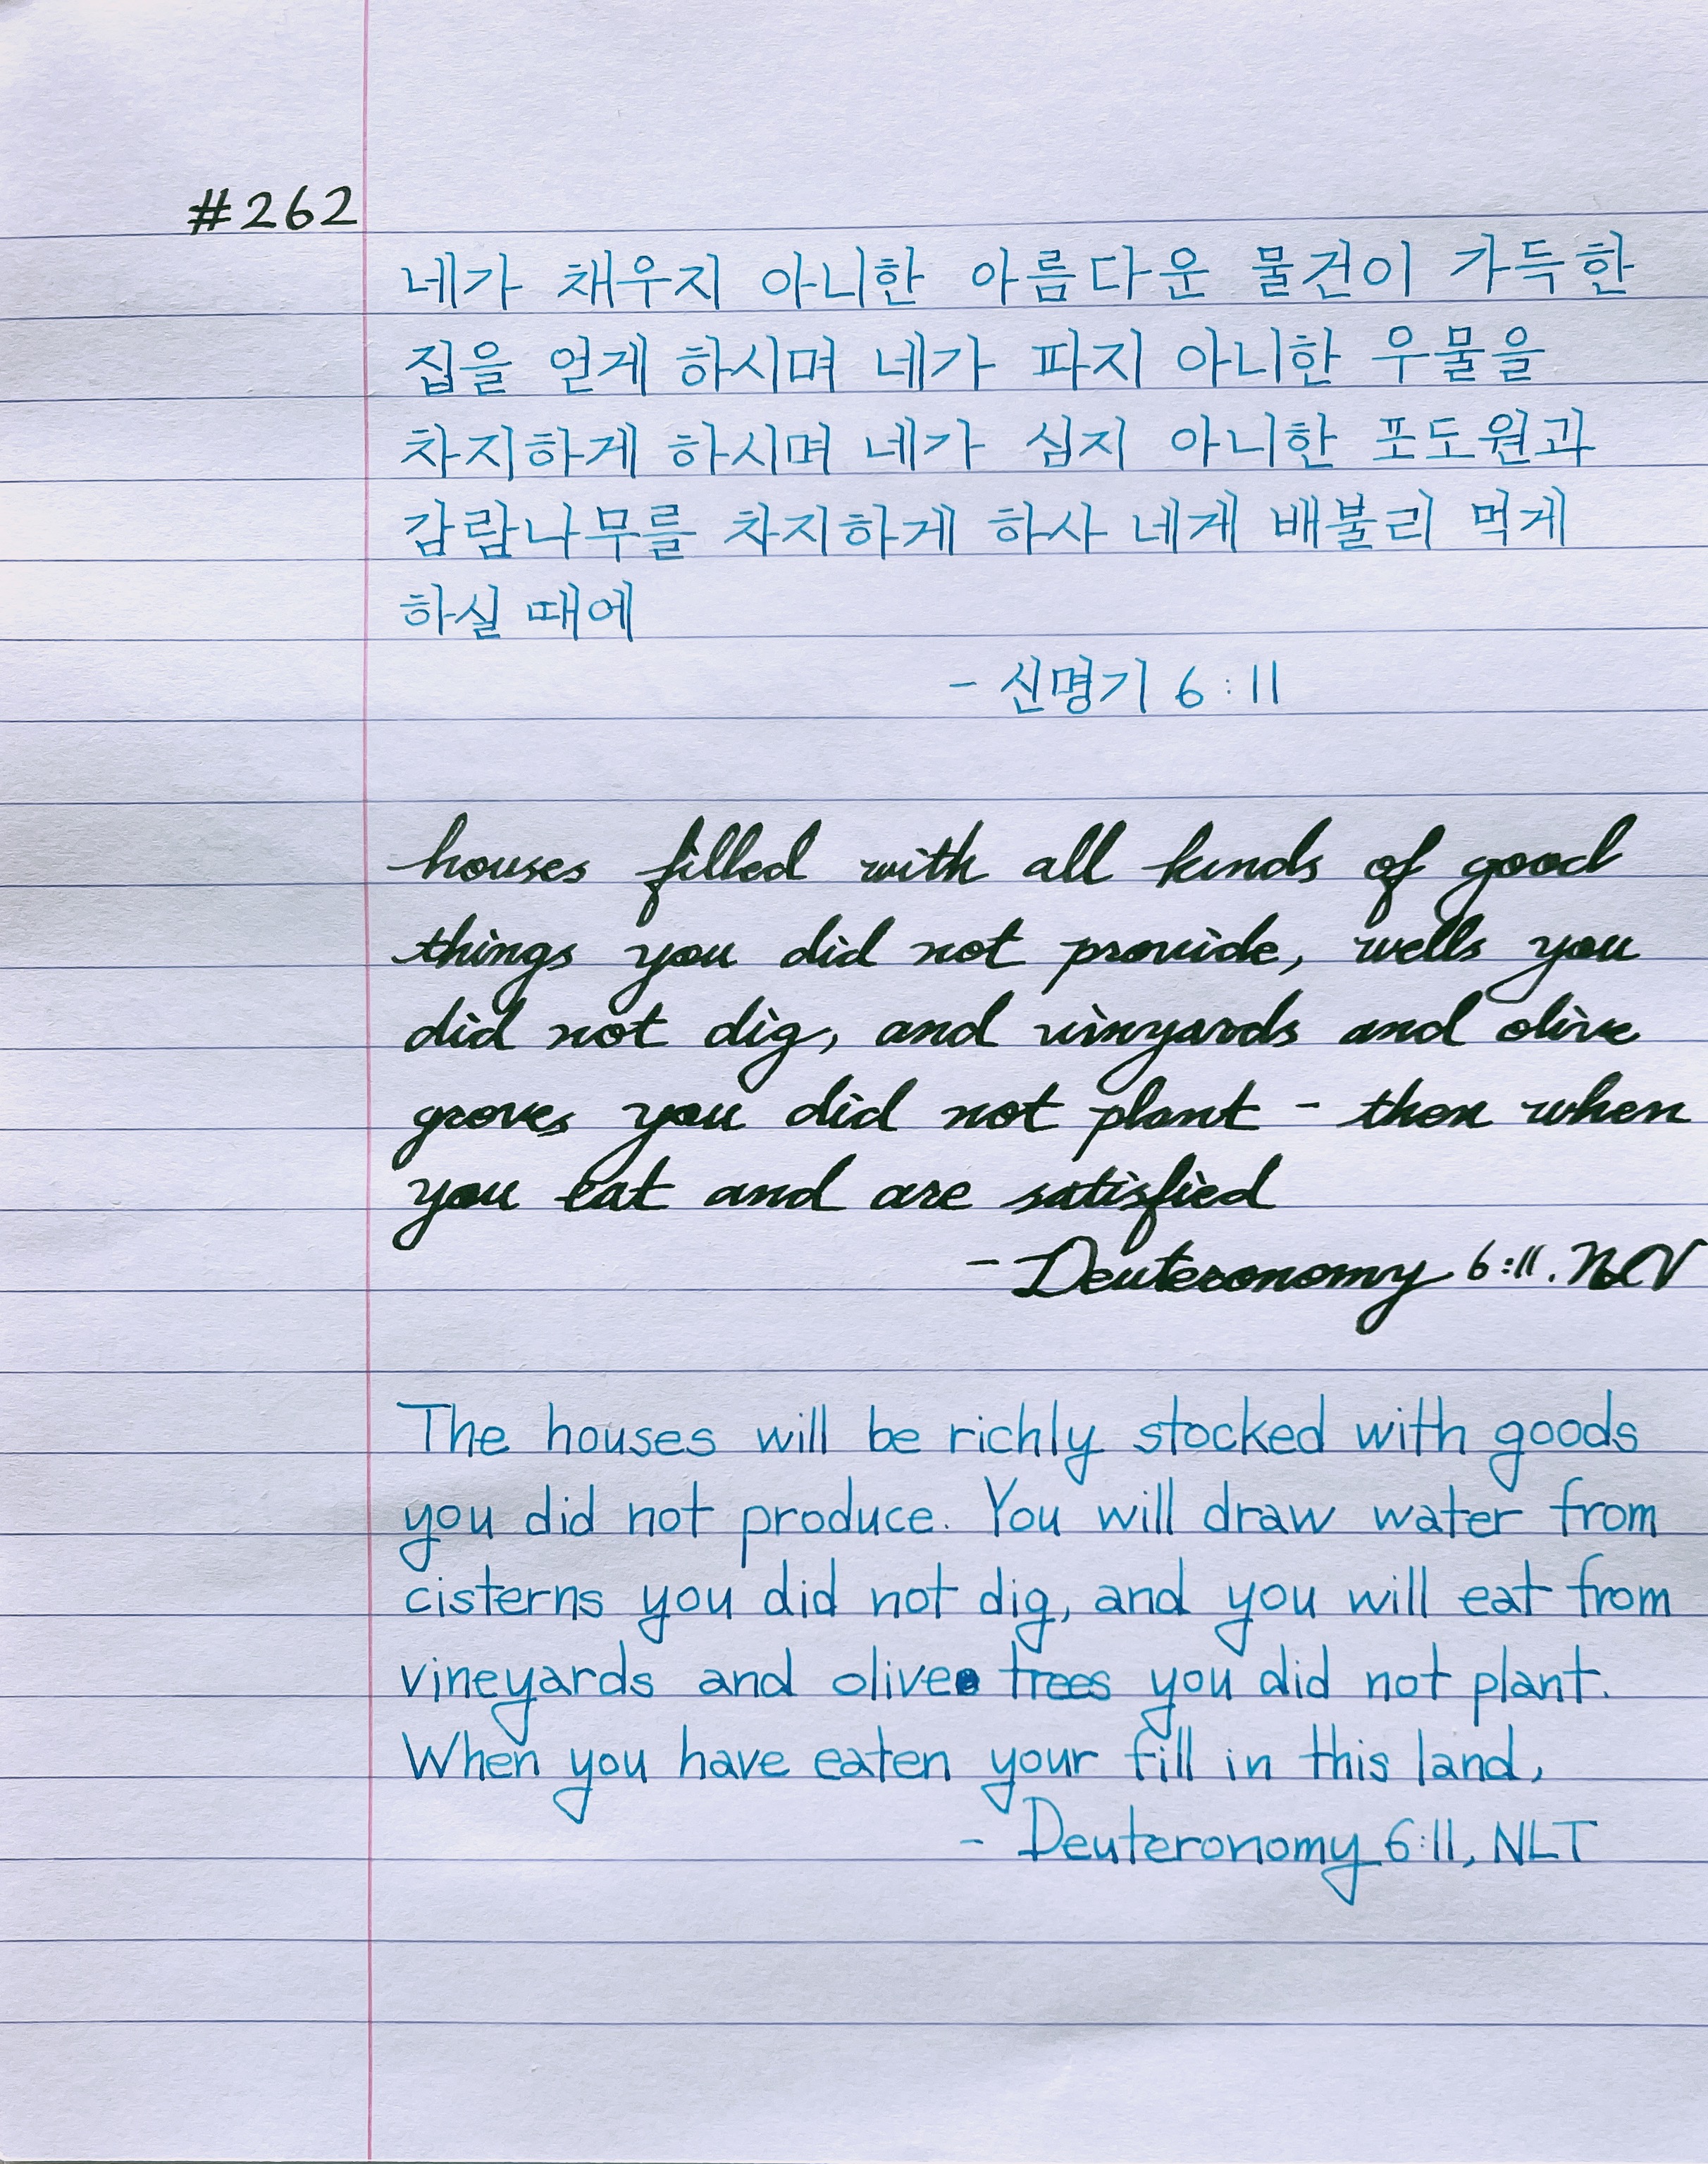 #262
네가 채우지 아니한 아름다운 물건이 가득한
집을 얻게 하시며 네가 파지 아니한 우물을
차지하게 하시며 네가 심지 아니한 포도원과
감람나무를 차지하게 하사 네게 배불리 먹게
하실 때에
- 신명기 6:11
houses filled with all kinds of good
things you did not provide, wells you
did not dig, and vinyards and olive
groves you did not plant - then when
you eat and are satisfied
- Deuteronomy 6:11. NIV
The houses will be richly stocked with goods
you did not produce. You will draw water from
cisterns you did not dig, and you will eat from
vineyards and olive trees you did not plant.
When you have eaten your fill in this land,
- Deuteronomy 6:11, NLT